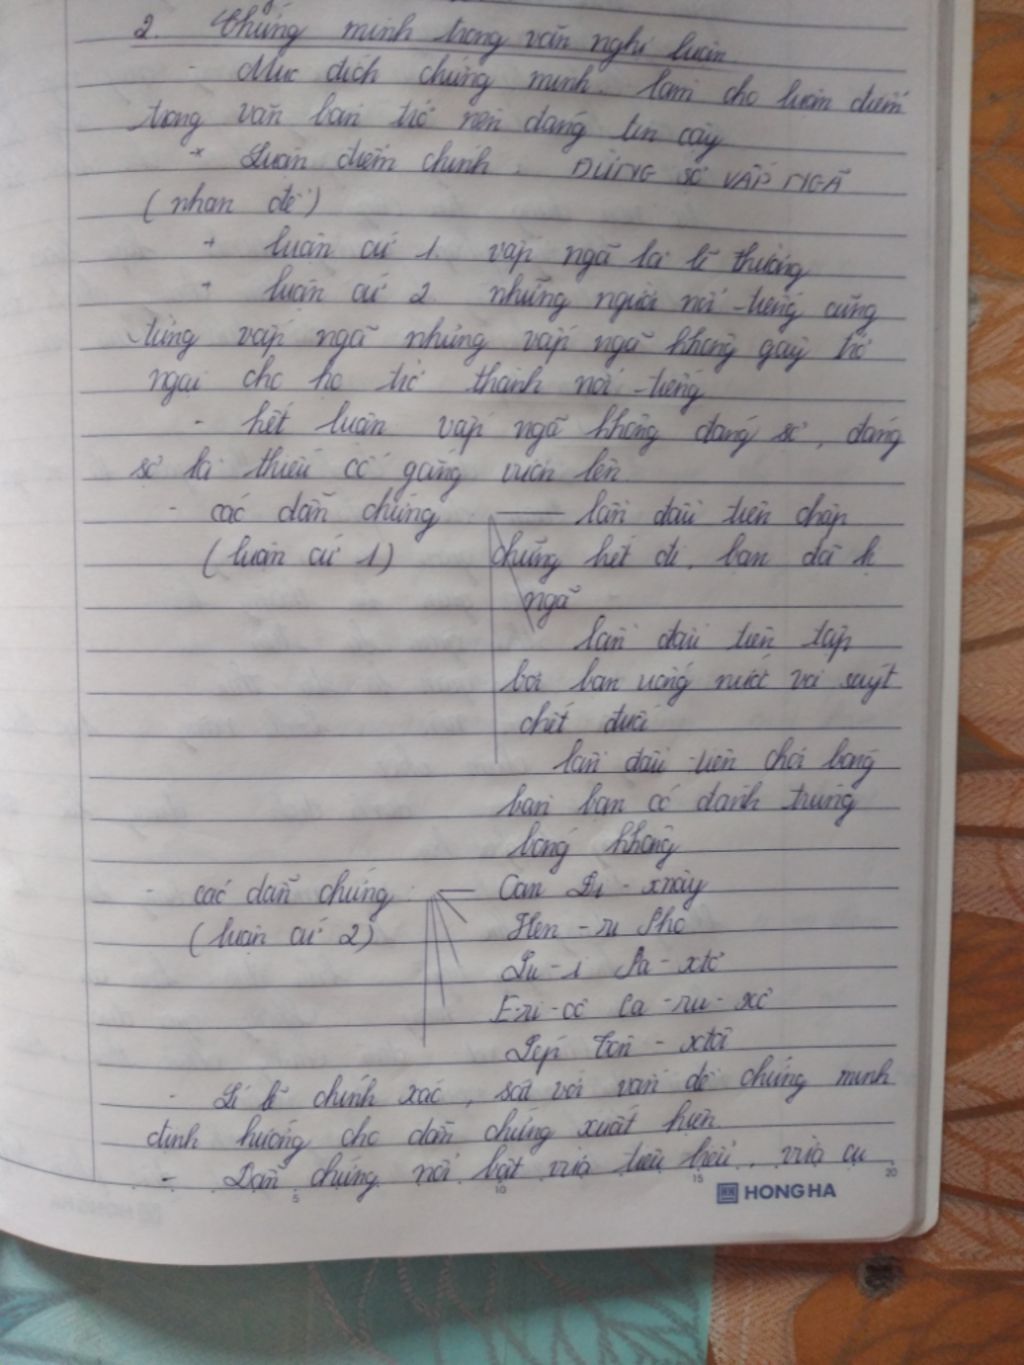 2. Chứng minh trong văn nghị luận
- Mục đích chứng minh. làm cho luận điểm
trong văn bản trở nên đáng tin cậy
* Luận điểm chính. ĐỪNG SỢ VẤP NGÃ
(nhan đề)
+ luận cứ 1. vấp ngã là lẽ thường
+ luận cứ 2. những người nổi tiếng cũng
từng vấp ngã nhưng vấp ngã không gây trở
ngại cho họ trở thành nổi tiếng
- kết luận. vấp ngã không đáng sợ, đáng
sợ là thiếu cố gắng vươn lên
- các dẫn chứng : lần đầu tiên chập
(luận cứ 1) chững biết đi, bạn đã b
ngã
lần đầu tiên tập
bơi bạn uống nước và suýt
chết đuối
lần đầu tiên chơi bóng
bàn bạn có đánh trúng
bóng không
- các dẫn chứng : Oan Đi-xnây
(luận cứ 2) Hen-ri Pho
Lu-i Pa-xtơ
E-ri-cô Ca-ru-xô
Lép Tôn-xtôi
- Lí lẽ chính xác, sát với vấn đề chứng minh
định hướng cho dẫn chứng xuất hiện
- Dẫn chứng nổi bật vừa tiêu biểu, vừa cụ
5 10 15 20
HONG HA